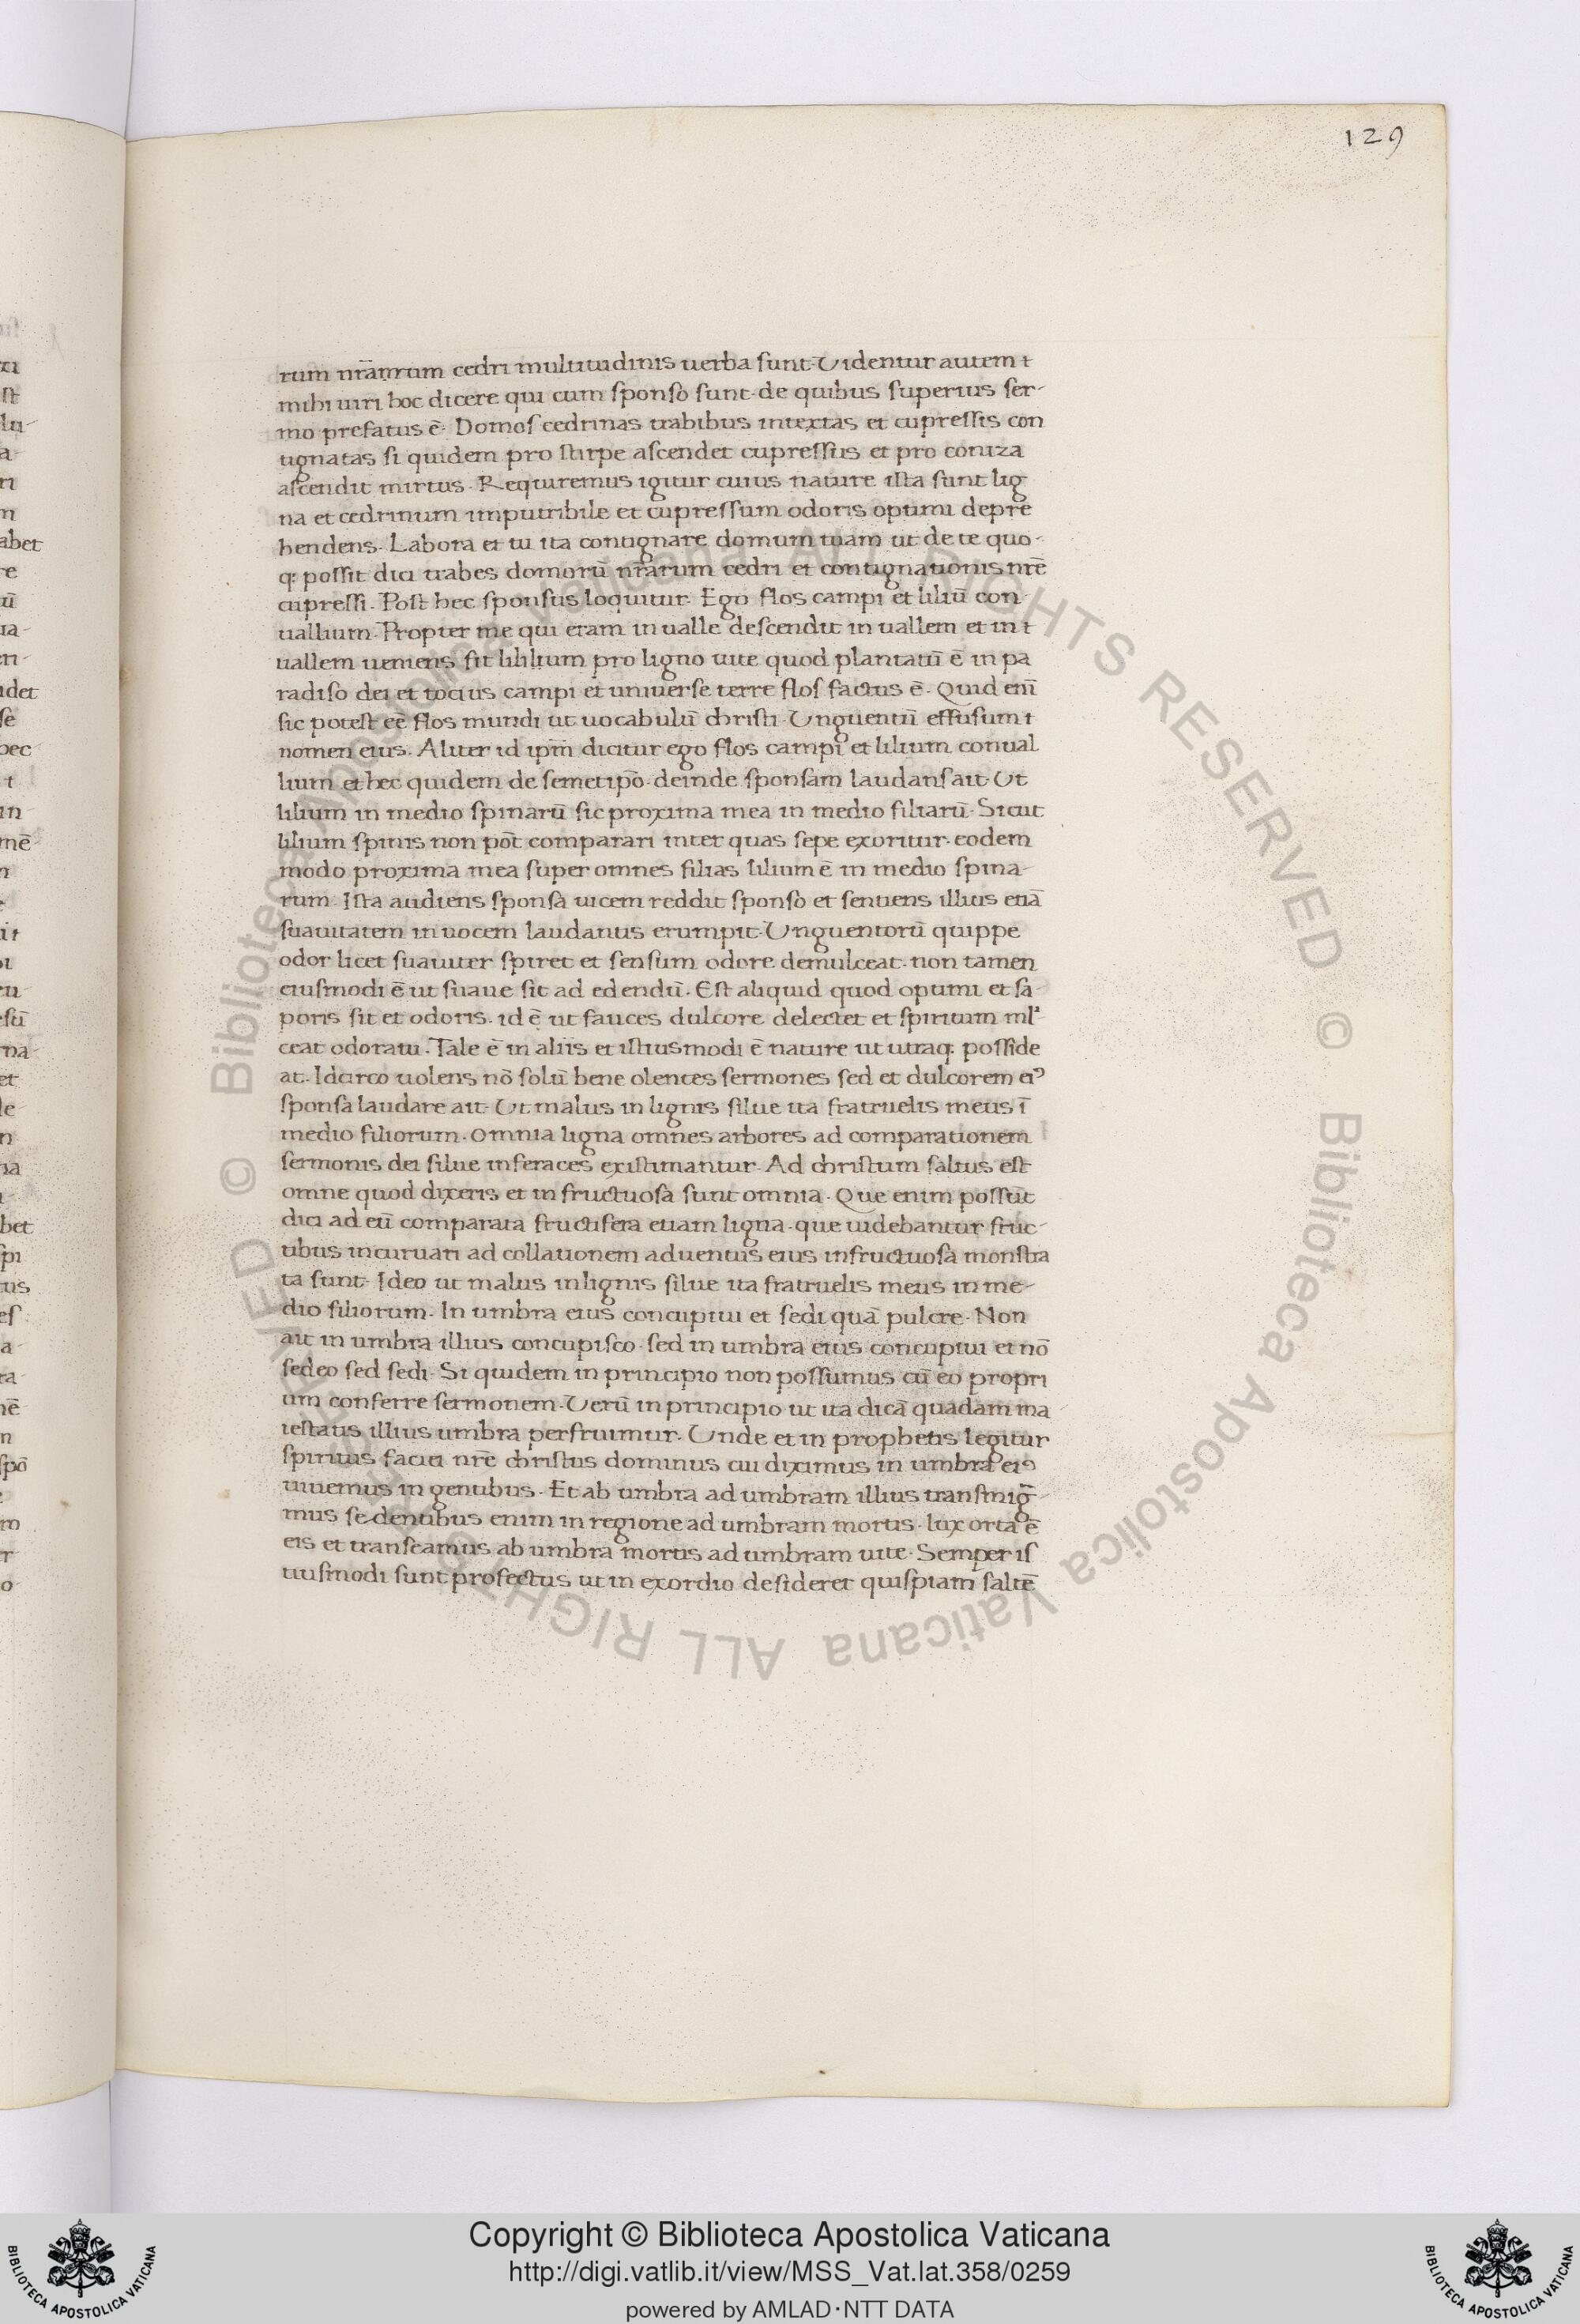 129
rum nr̄amrum cedri multitudinis uerba sunt. Uidentur autem t
mihi uiri hoc dicere qui cum sponso sunt. de quibus superius ser-
mo prefatus ē. Domos cedrinas trabibus intextas et cupressis con
tignatas si quidem pro stirpe ascendet cupressus et pro coniza
ascendit mirtus. Requiremus igitur cuius nature ista sunt lig
na et cedrinum imputribile et cupressum odoris optimi depre
hendens. Labora et tu ita contignare domum tuam ut de te quo-
q: possit dici trabes domorū nr̄arum cedri et contignationis nr̄e
cupressi. Post hec sponsus loquitur. Ego flos campi et liliū con-
uallium. Propter me qui eram in ualle descendit in uallem et in t
uallem ueniens fit lililium pro ligno uite quod plantatū ē in pa
radiso dei et tocius campi et uniuerse terre flos factus ē. Quid eni̅
sic potest ee̅ flos mundi ut uocabulū christi. Unguentū effusum t
nomen eius. Aliter id ipm̄ dicitur ego flos campi et lilium conual
lium et hec quidem de semetipo̅. deinde sponsam laudans ait. Ut
lilium in medio spinarū sic proxima mea in medio filiarū. Sicut
lilium spinis non po̅t comparari inter quas sepe exoritur. eodem
modo proxima mea super omnes filias lilium ē in medio spina-
rum. Ista audiens sponsa uicem reddit sponso et sentiens illius etiā
suauitatem in uocem laudantis erumpit. Unguentorū quippe
odor licet suauiter spiret et sensum odore demulceat. non tamen
eiusmodi ē ut suaue sit ad edendū. Est aliquid quod optimi et sa-
poris sit et odoris. id ē ut fauces dulcore delectet et spiritum ml̓
ceat odoratu. Tale ē in aliis et istiusmodi ē nature ut utraq: posside
at. Idcirco uolens nō solū bene olentes sermones sed et dulcorem eiꝰ
sponsa laudare ait. Ut malus in lignis silue ita fratruelis meus ī
medio filiorum. Omnia ligna omnes arbores ad comparationem
sermonis dei silue inferaces existimantur. Ad christum saltus est
omne quod dixeris et infructuosa sunt omnia. Que enim possūt
dici ad eū comparata fructifera etiam ligna. que uidebantur fruc-
tibus incuruari ad collationem aduentus eius infructuosa monstra
ta sunt. Ideo ut malus in lignis silue ita fratruelis meus in me-
dio filiorum. In umbra eius concupiui et sedi quā pulcre. Non
ait in umbra illius concupisco. sed in umbra eius concupiui et nō
sedeo sed sedi. Si quidem in principio non possumus cū eo propri
um conferre sermonem. Uerū in principio ut ita dicā quadam ma
iestatis illius umbra perfruimur. Unde et in prophetis legitur
spiritus faciei nr̄e christus dominus cui diximus in umbra eiꝰ
uiuemus in gentibus. Et ab umbra ad umbram illius transmig̅-
mus sedentibus enim in regione ad umbram mortis. lux orta ē
eis et transeamus ab umbra mortis ad umbram uite. Semper is
tiusmodi sunt profectus ut in exordio desideret quispiam saltē
© Biblioteca Apostolica Vaticana ALL RIGHTS RESERVED © Biblioteca Apostolica Vaticana ALL RIGHTS RESERVED
Copyright © Biblioteca Apostolica Vaticana
http://digi.vatlib.it/view/MSS_Vat.lat.358/0259
powered by AMLAD·NTT DATA
BIBLIOTECA APOSTOLICA VATICANA
BIBLIOTECA APOSTOLICA VATICANA